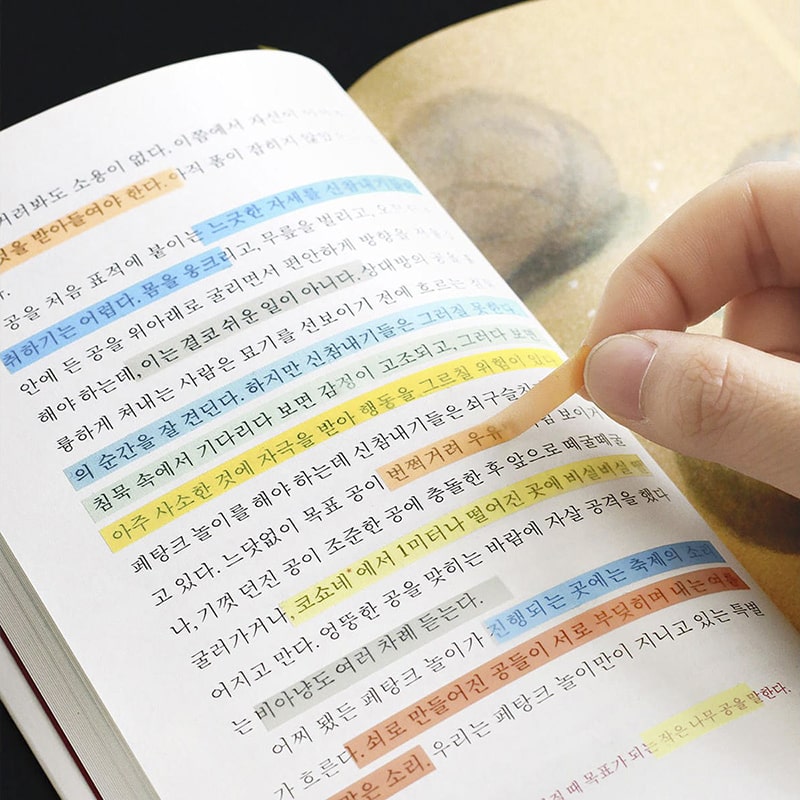 거려봐도 소용이 없다. 이쯤에서 자신이
것을 받아들여야 한다. 아직 폼이 잡히지 않았
다.
공을 처음 표적에 붙이는 느긋한 자세를 신참내기들
취하기는 어렵다. 몸을 웅크리고, 무릎을 벌리고,
안에 든 공을 위아래로 굴리면서 편안하게 방향을
해야 하는데, 이는 결코 쉬운 일이 아니다. 상대방의 공을
륭하게 쳐내는 사람은 묘기를 선보이기 전에 흐르는
의 순간을 잘 견딘다. 하지만 신참내기들은 그러질 못한다.
침묵 속에서 기다리다 보면 감정이 고조되고, 그러다 보면
아주 사소한 것에 자극을 받아 행동을 그르칠 위험이 있다.
페탕크 놀이를 해야 하는데 신참내기들은 쇠구슬치기
고 있다. 느닷없이 목표 공이 번쩍거려 우유 보이기
나, 기껏 던진 공이 조준한 공에 충돌한 후 앞으로 떼굴떼굴
굴러가거나, 코쇼네*에서 1미터나 떨어진 곳에 비실비실
어지고 만다. 엉뚱한 공을 맞히는 바람에 자살 공격을 했다
는 비아냥도 여러 차례 듣는다.
어찌 됐든 페탕크 놀이가 진행되는 곳에는 축제의 소리
가 흐른다. 쇠로 만들어진 공들이 서로 부딪히며 내는 여름
같은 소리. 우리는 페탕크 놀이만이 지니고 있는 특별
때 목표가 되는 작은 나무 공을 말한다.